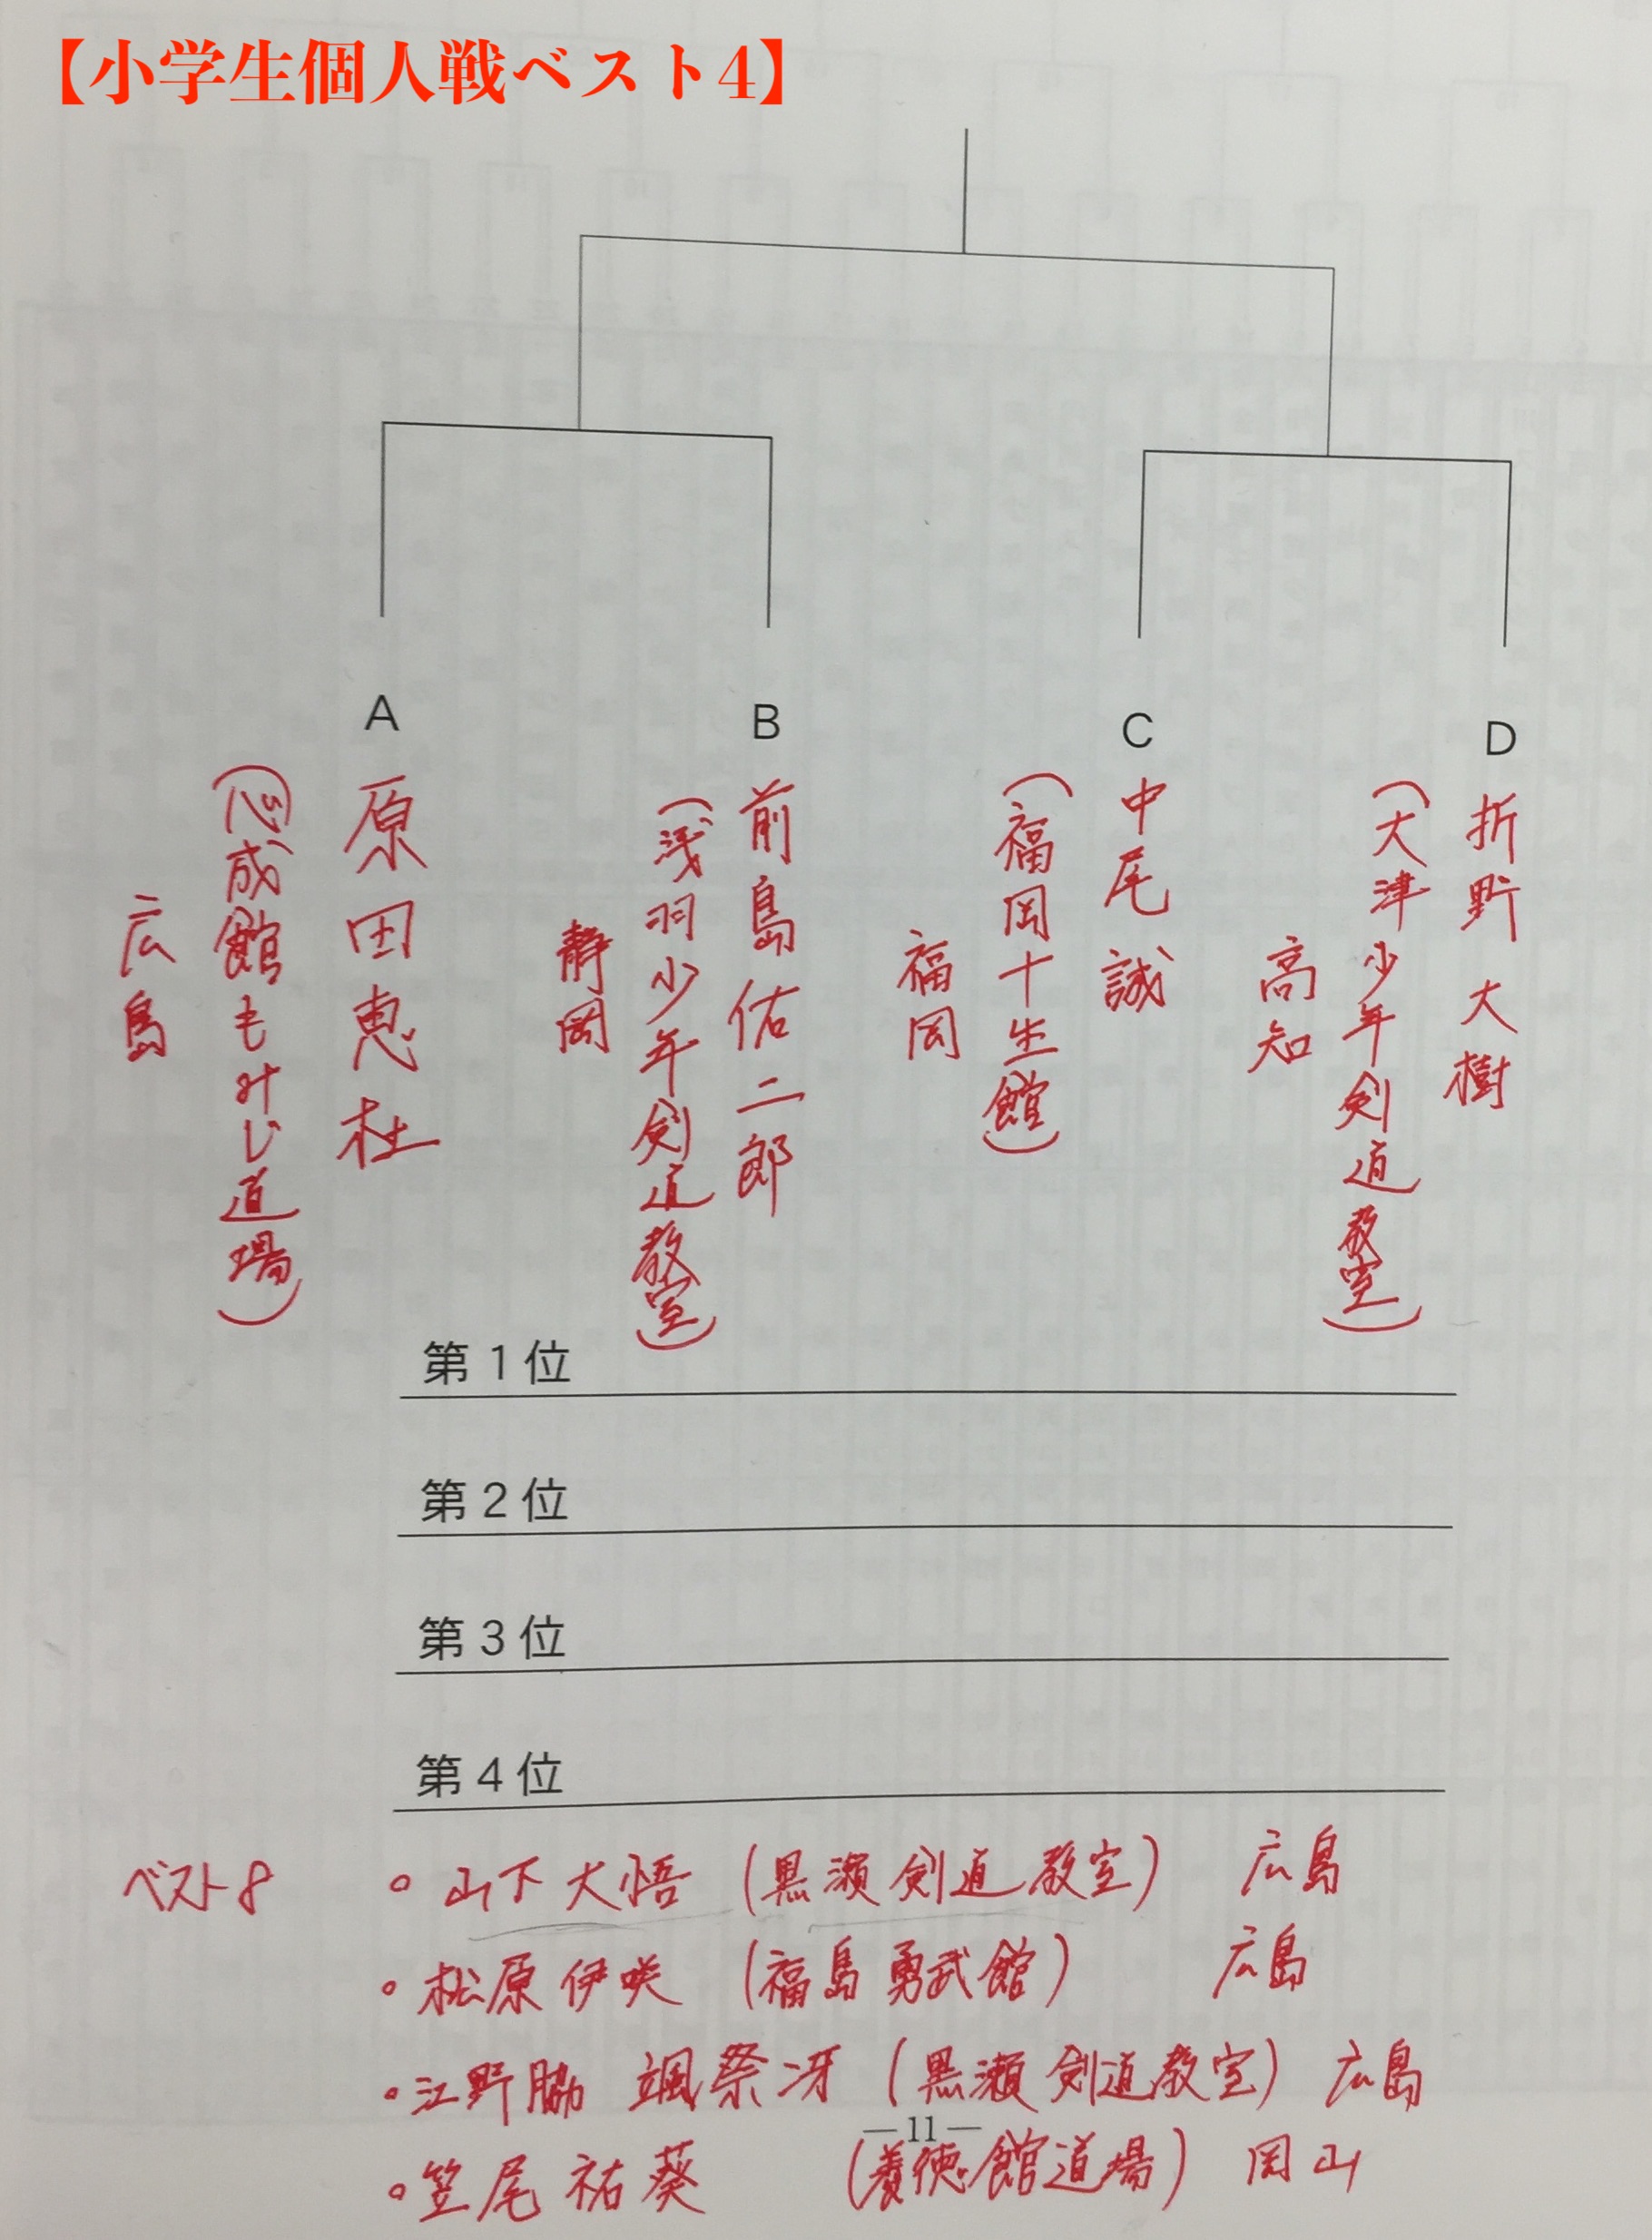 【小学生個人戦ベスト4】
A
B
C
D
原田恵杜
(心成館もみじ道場)
広島
前島佑二郎
(浅羽少年剣道教室)
静岡
中尾誠
(福岡十生館)
福岡
折野大樹
(大津少年剣道教室)
高知
第1位
第2位
第3位
第4位
ベスト8
○山下大悟 (黒瀬剣道教室) 広島
○松原伊咲 (福島勇武館) 広島
○江野脇 颯祭冴 (黒瀬剣道教室) 広島
—11—
○笠尾祐葵 (養徳館道場) 岡山